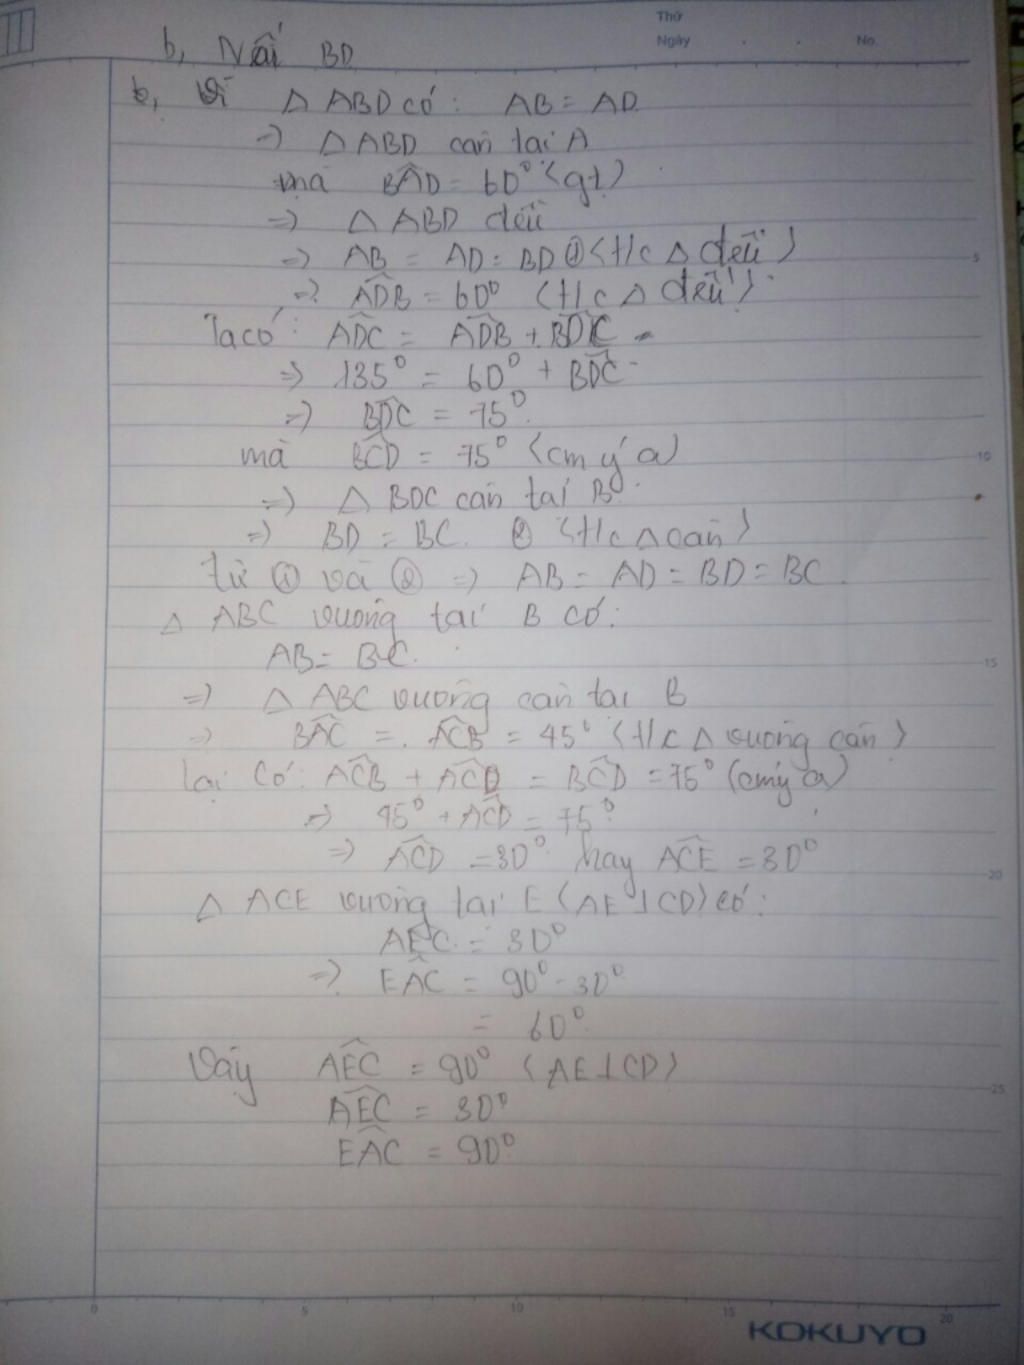 Thứ
Ngày . . No.
b, Nối BD
b, Vì Δ ABD có: AB = AD
=> Δ ABD cân tại A
mà BAD = 60° (gt)
=> Δ ABD đều
=> AB = AD = BD ① (t/c Δ đều)
=> ADB = 60° (t/c Δ đều)
Ta có: ADC = ADB + BDC
=> 135° = 60° + BDC
=> BDC = 75°
mà BCD = 75° (cm ý a)
=> Δ BDC cân tại B
=> BD = BC ② (t/c Δ cân)
từ ① và ② => AB = AD = BD = BC
Δ ABC vuông tại B có:
AB = BC
=> Δ ABC vuông cân tại B
=> BAC = ACB = 45° (t/c Δ vuông cân)
lại có: ACB + ACD = BCD = 75° (cm ý a)
=> 45° + ACD = 75°
=> ACD = 30° hay ACE = 30°
Δ ACE vuông tại E (AE ⊥ CD) có:
AEC = 30°
=> EAC = 90° - 30°
= 60°
Vậy AEC = 90° (AE ⊥ CD)
AEC = 30°
EAC = 90°
5
10
15
20
25
0 5 10 15 20
KOKUYO